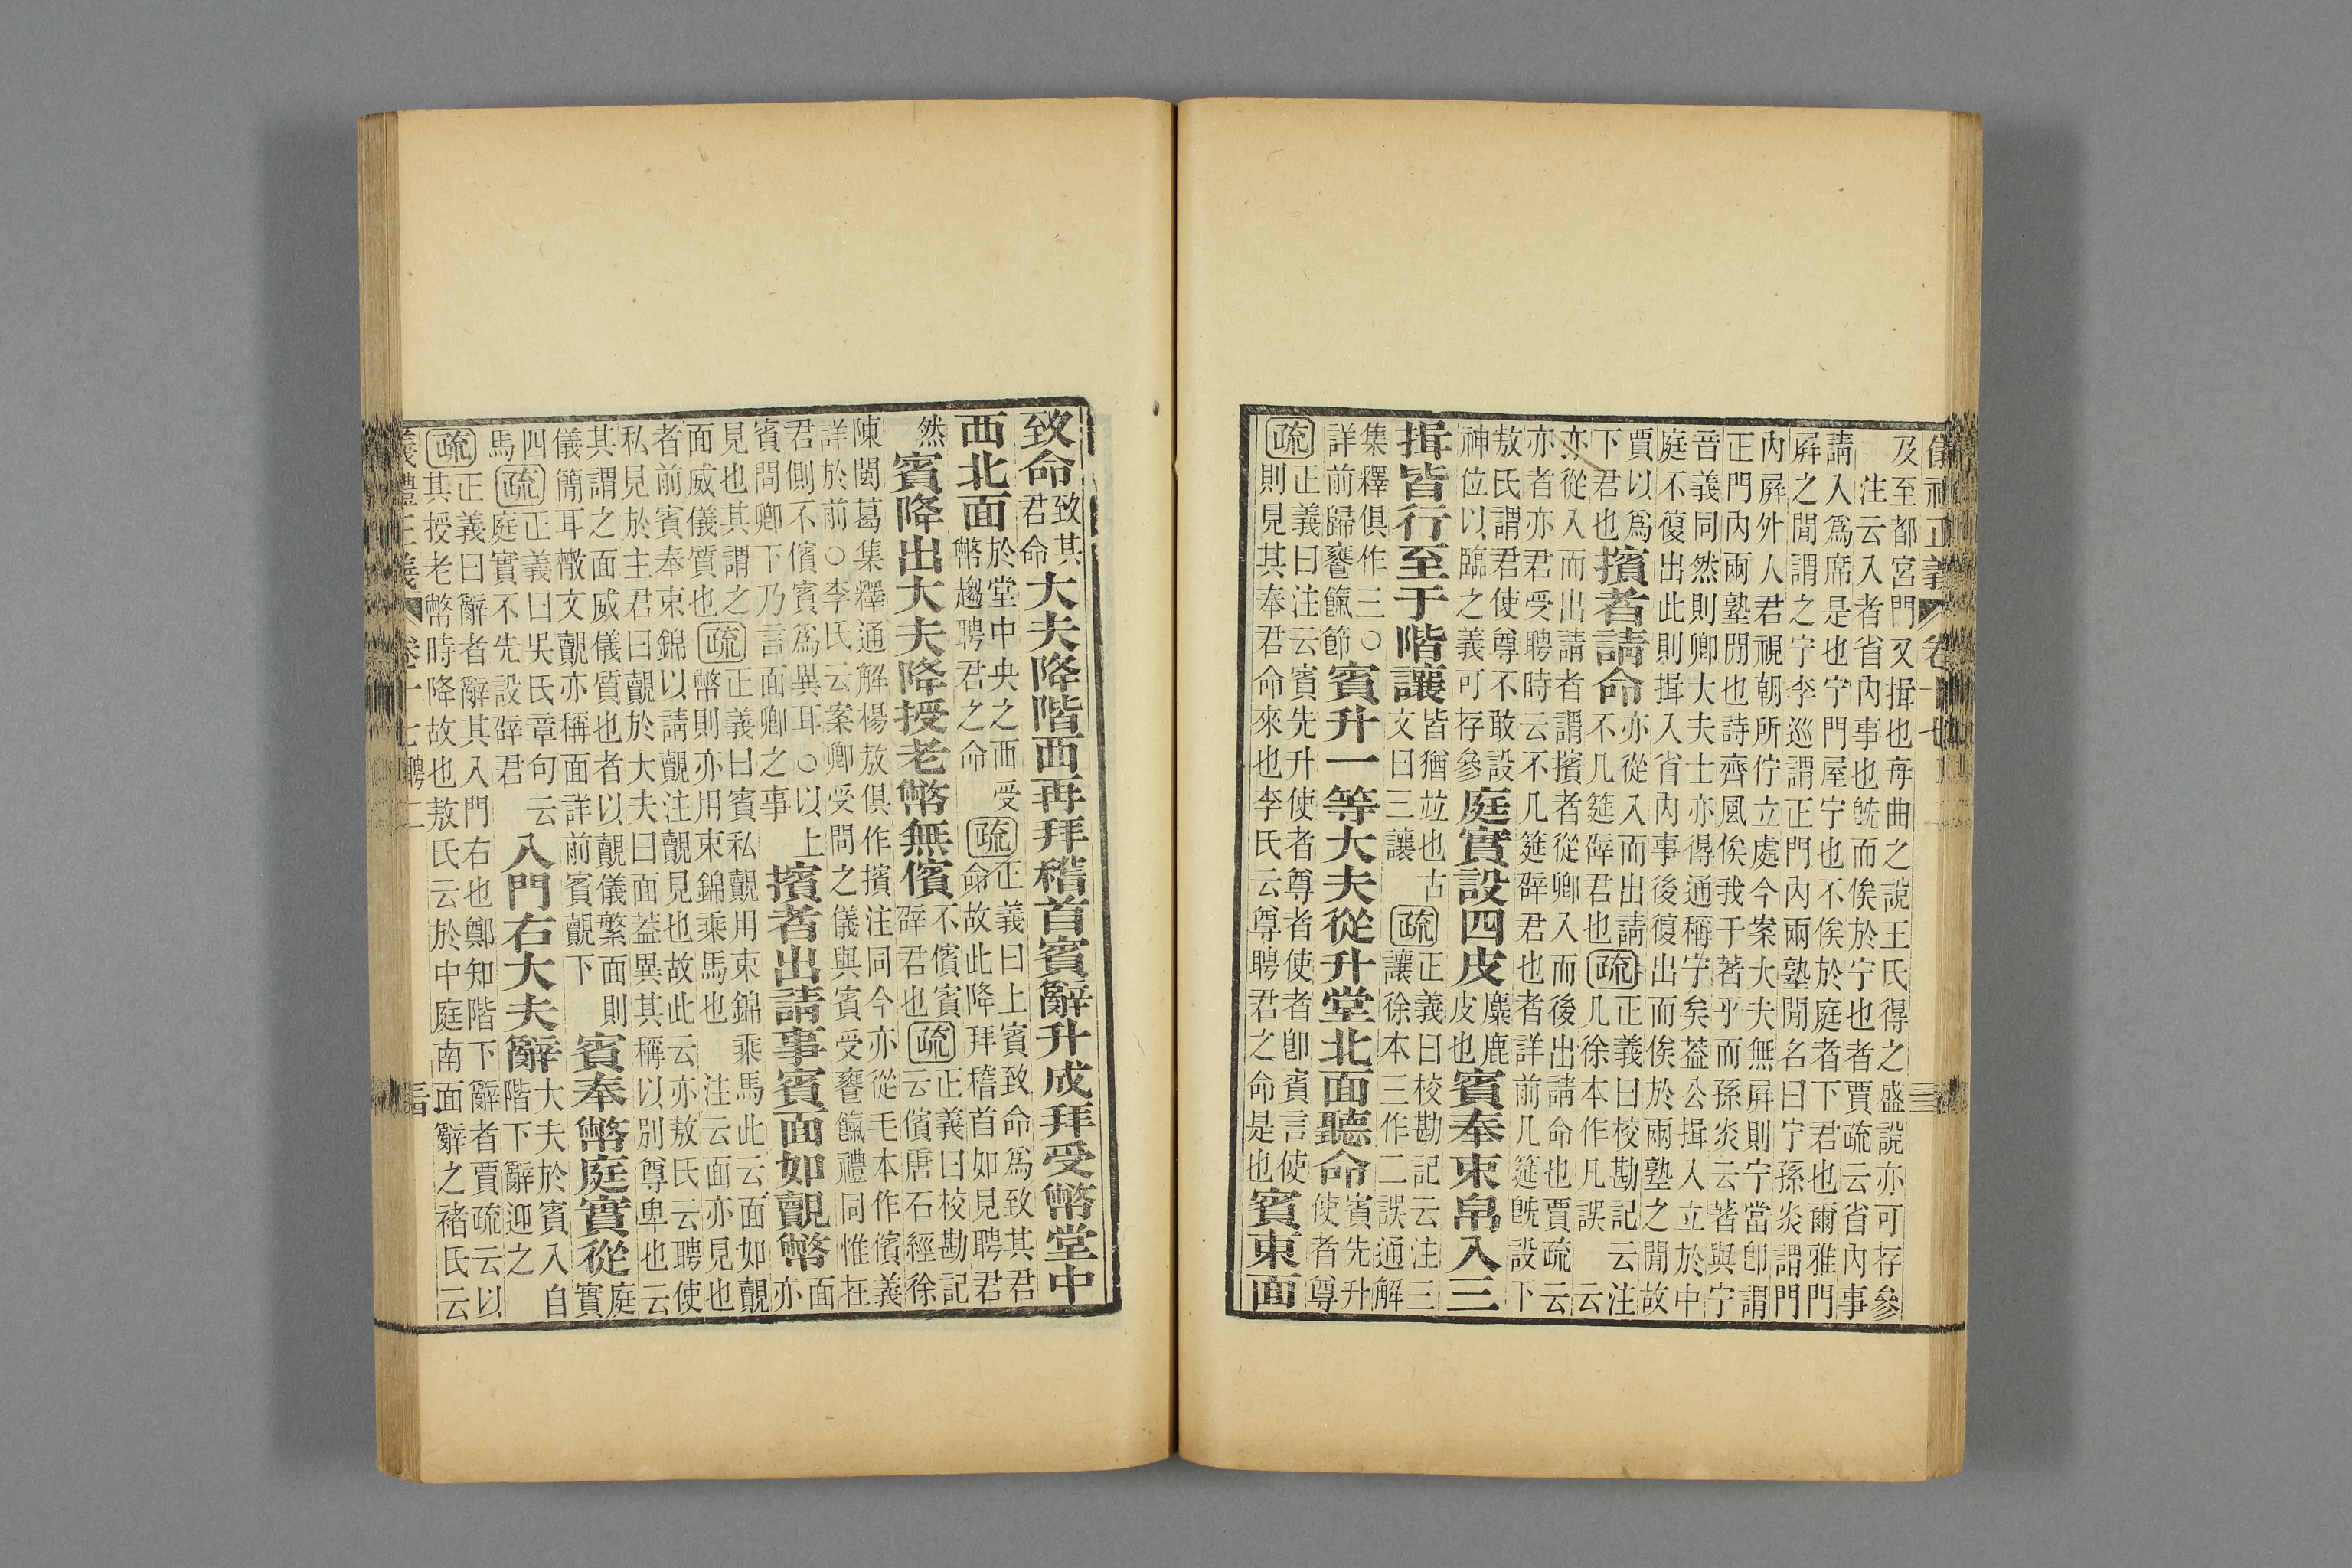 儀禮正義 卷十七
及至都宮門又揖也每曲之說王氏得之盛說亦可存參
注云入者省內事也旣而俟於宁也者賈疏云省內事
請入爲席是也宁門屋宁也不俟於庭者下君也爾雅門
屛之閒謂之宁李巡謂正門內兩塾閒名曰宁孫炎謂門
內屛外人君視朝所佇立處今案大夫無屛則宁當卽謂
正門內兩塾閒也詩齊風俟我于著乎而孫炎云著與宁
音義同然則卿大夫士亦得通稱宁矣葢公揖入立於中
庭不復出此則揖入省內事後復出而俟於兩塾之閒故
賈以爲下君也擯者請命亦從入而出請不几筵辟君也疏正義曰校勘記云注几徐本作凡誤 云
亦從入而出請者謂擯者從卿入而後出請命也賈疏云
亦者亦君受聘時云不几筵辟君也者詳前几筵旣設下
敖氏謂君使尊不敢設神位以臨之義可存參庭實設四皮麋鹿皮也賓奉束帛入三
揖皆行至于階讓皆猶竝也古文曰三讓疏正義曰校勘記云注三讓徐本三作二誤通解
集釋俱作三○詳前歸饔餼節賓升一等大夫從升堂北面聽命賓先升使者尊
疏正義曰注云賓先升使者尊者使者卽賓言使則見其奉君命來也李氏云尊聘君之命是也賓東面
致命致其君命大夫降階西再拜稽首賓辭升成拜受幣堂中
西北面於堂中央之西受幣趨聘君之命疏正義曰上賓致命爲致其君命故此降拜稽首如見聘君
然賓降出大夫降授老幣無儐不儐賓辟君也疏正義曰校勘記云儐唐石經徐
陳閎葛集釋通解楊敖俱作擯注同今亦從毛本作儐義
詳於前○李氏云案卿受問之儀與賓受饔餼禮同惟在
君側不儐賓爲異耳○以上賓問卿下乃言面卿之事擯者出請事賓面如覿幣面亦
見也其謂之面威儀質也疏正義曰賓私覿用束錦乘馬此云面如覿幣則亦用束錦乘馬也 注云面亦見也
者前賓奉束錦以請覿注覿見也故此云亦敖氏云聘使
私見於主君曰覿於大夫曰面葢異其稱以別尊卑也云
其謂之面威儀質也者以覿儀繁面則儀簡耳檄文覿亦稱面詳前賓覿下賓奉幣庭實從庭實
四馬疏正義曰吳氏章句云庭實不先設辟君入門右大夫辭大夫於賓入自階下辭迎之
疏正義曰辭者辭其入門右也鄭知階下辭者賈疏云以其授老幣時降故也敖氏云於中庭南面辭之褚氏云
義禮正義 卷十七聘二